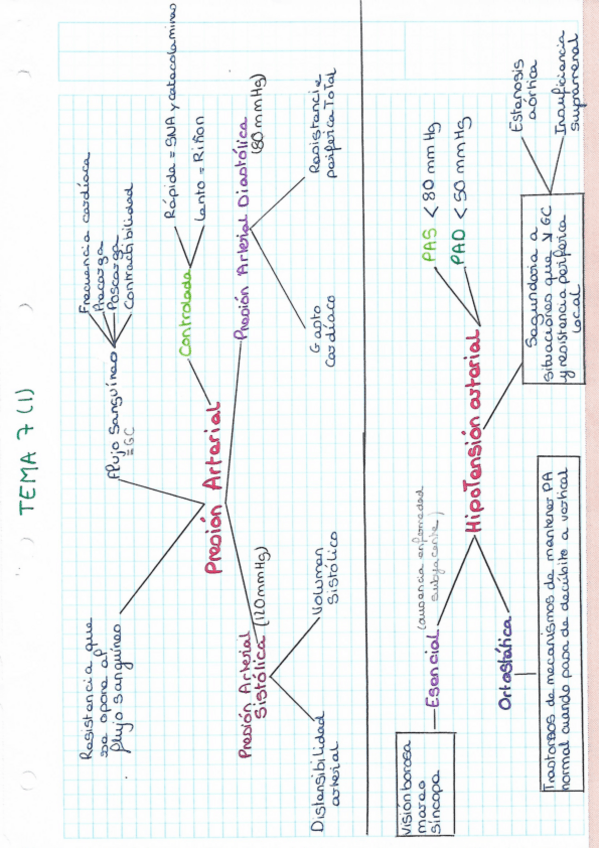 TEMA 7 (1)
Resistencia que
se opone al
flujo sanguíneo
Flujo sanguíneo
= GC
Frecuencia cardíaca
Precarga
Poscarga
Contractibilidad
Presión Arterial
Controlada
Rápida = SNA y catecolaminas
Lenta = Riñon
Presión Arterial
Sistólica (120 mmHg)
Distensibilidad
arterial
Volumen
Sistólico
Presión Arterial Diastólica
(80 mmHg)
Gasto
Cardíaco
Resistencia
periferica Total
Hipotensión arterial
PAS < 80 mmHg
PAD < 50 mmHg
Esencial
(ausencia enfermedad
subyacente)
Visión borosa
mareo
síncope
Ortostática
Trastornos de mecanismos de mantener PA
normal cuando pasa de decúbito a vertical
Segundaria a
situaciones que ↓ GC
y resistencia periferica
local
Estenosis
aórtica
Insuficiencia
suprarrenal